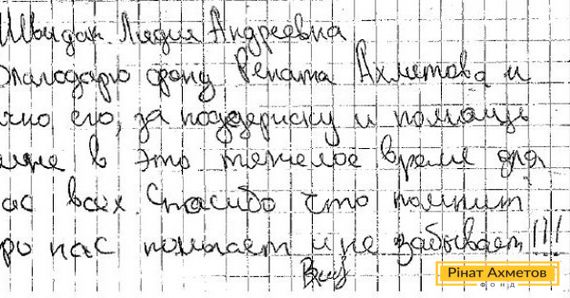 Швидак Лидия Андреевна
благодарю фонд Рената Ахметова и
его, за поддержку и помощь
мне в это тяжелое время для
нас всех. Спасибо что помнит
про нас помагает и не забывает!!!
Рінат Ахметов
ФОНД